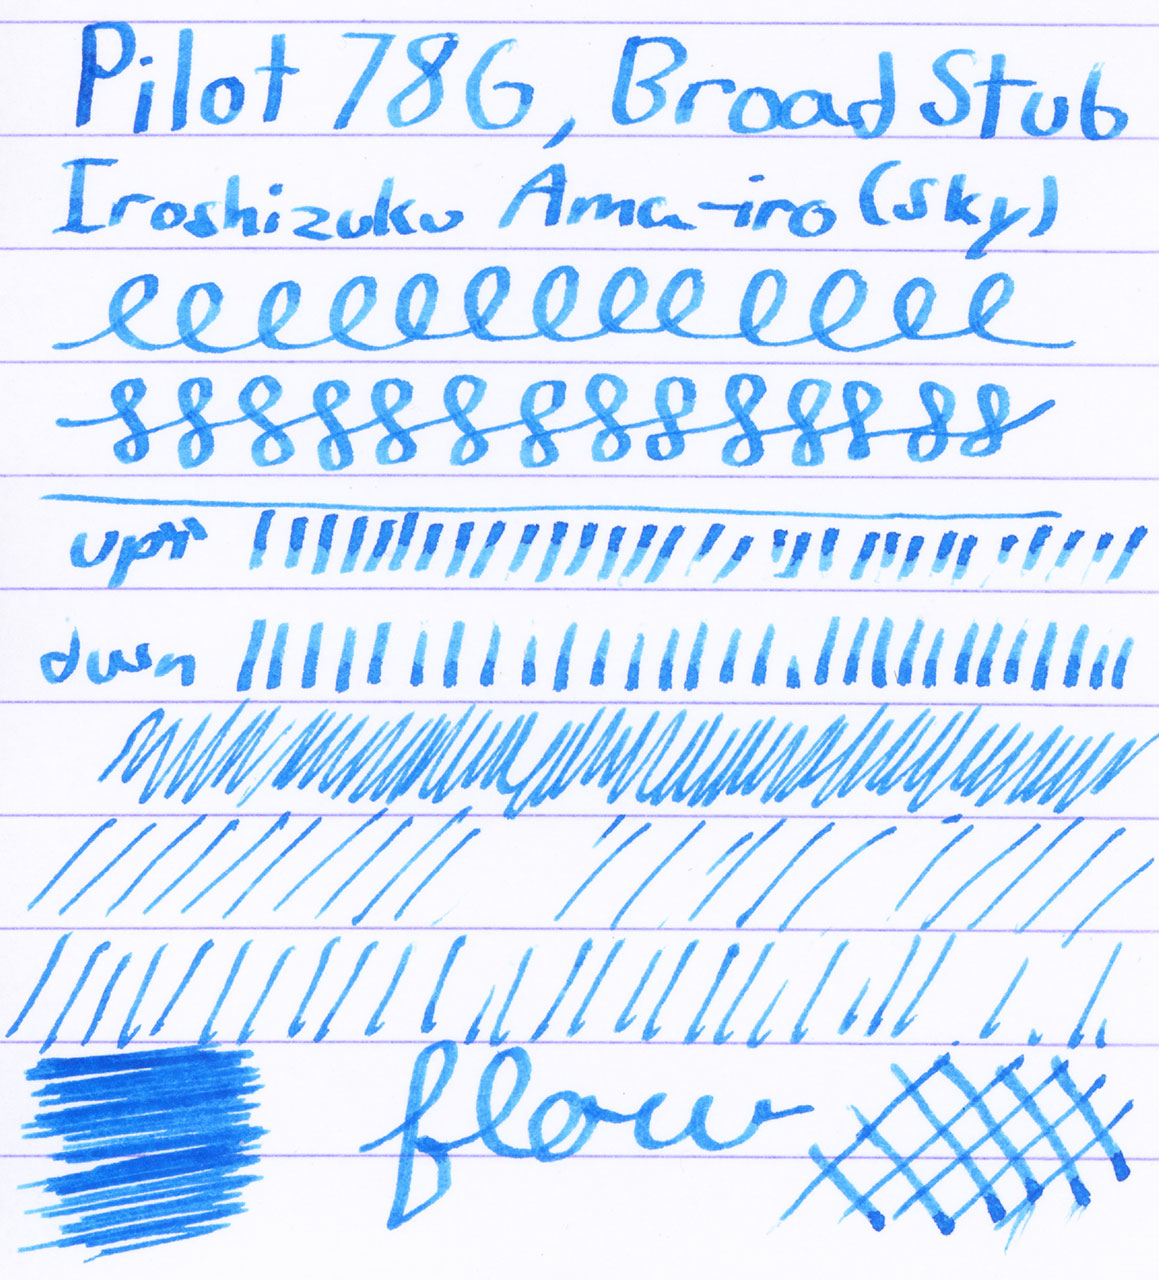 Pilot 78G, Broad Stub
Iroshizuku Ama-iro (sky)
up
down
flow